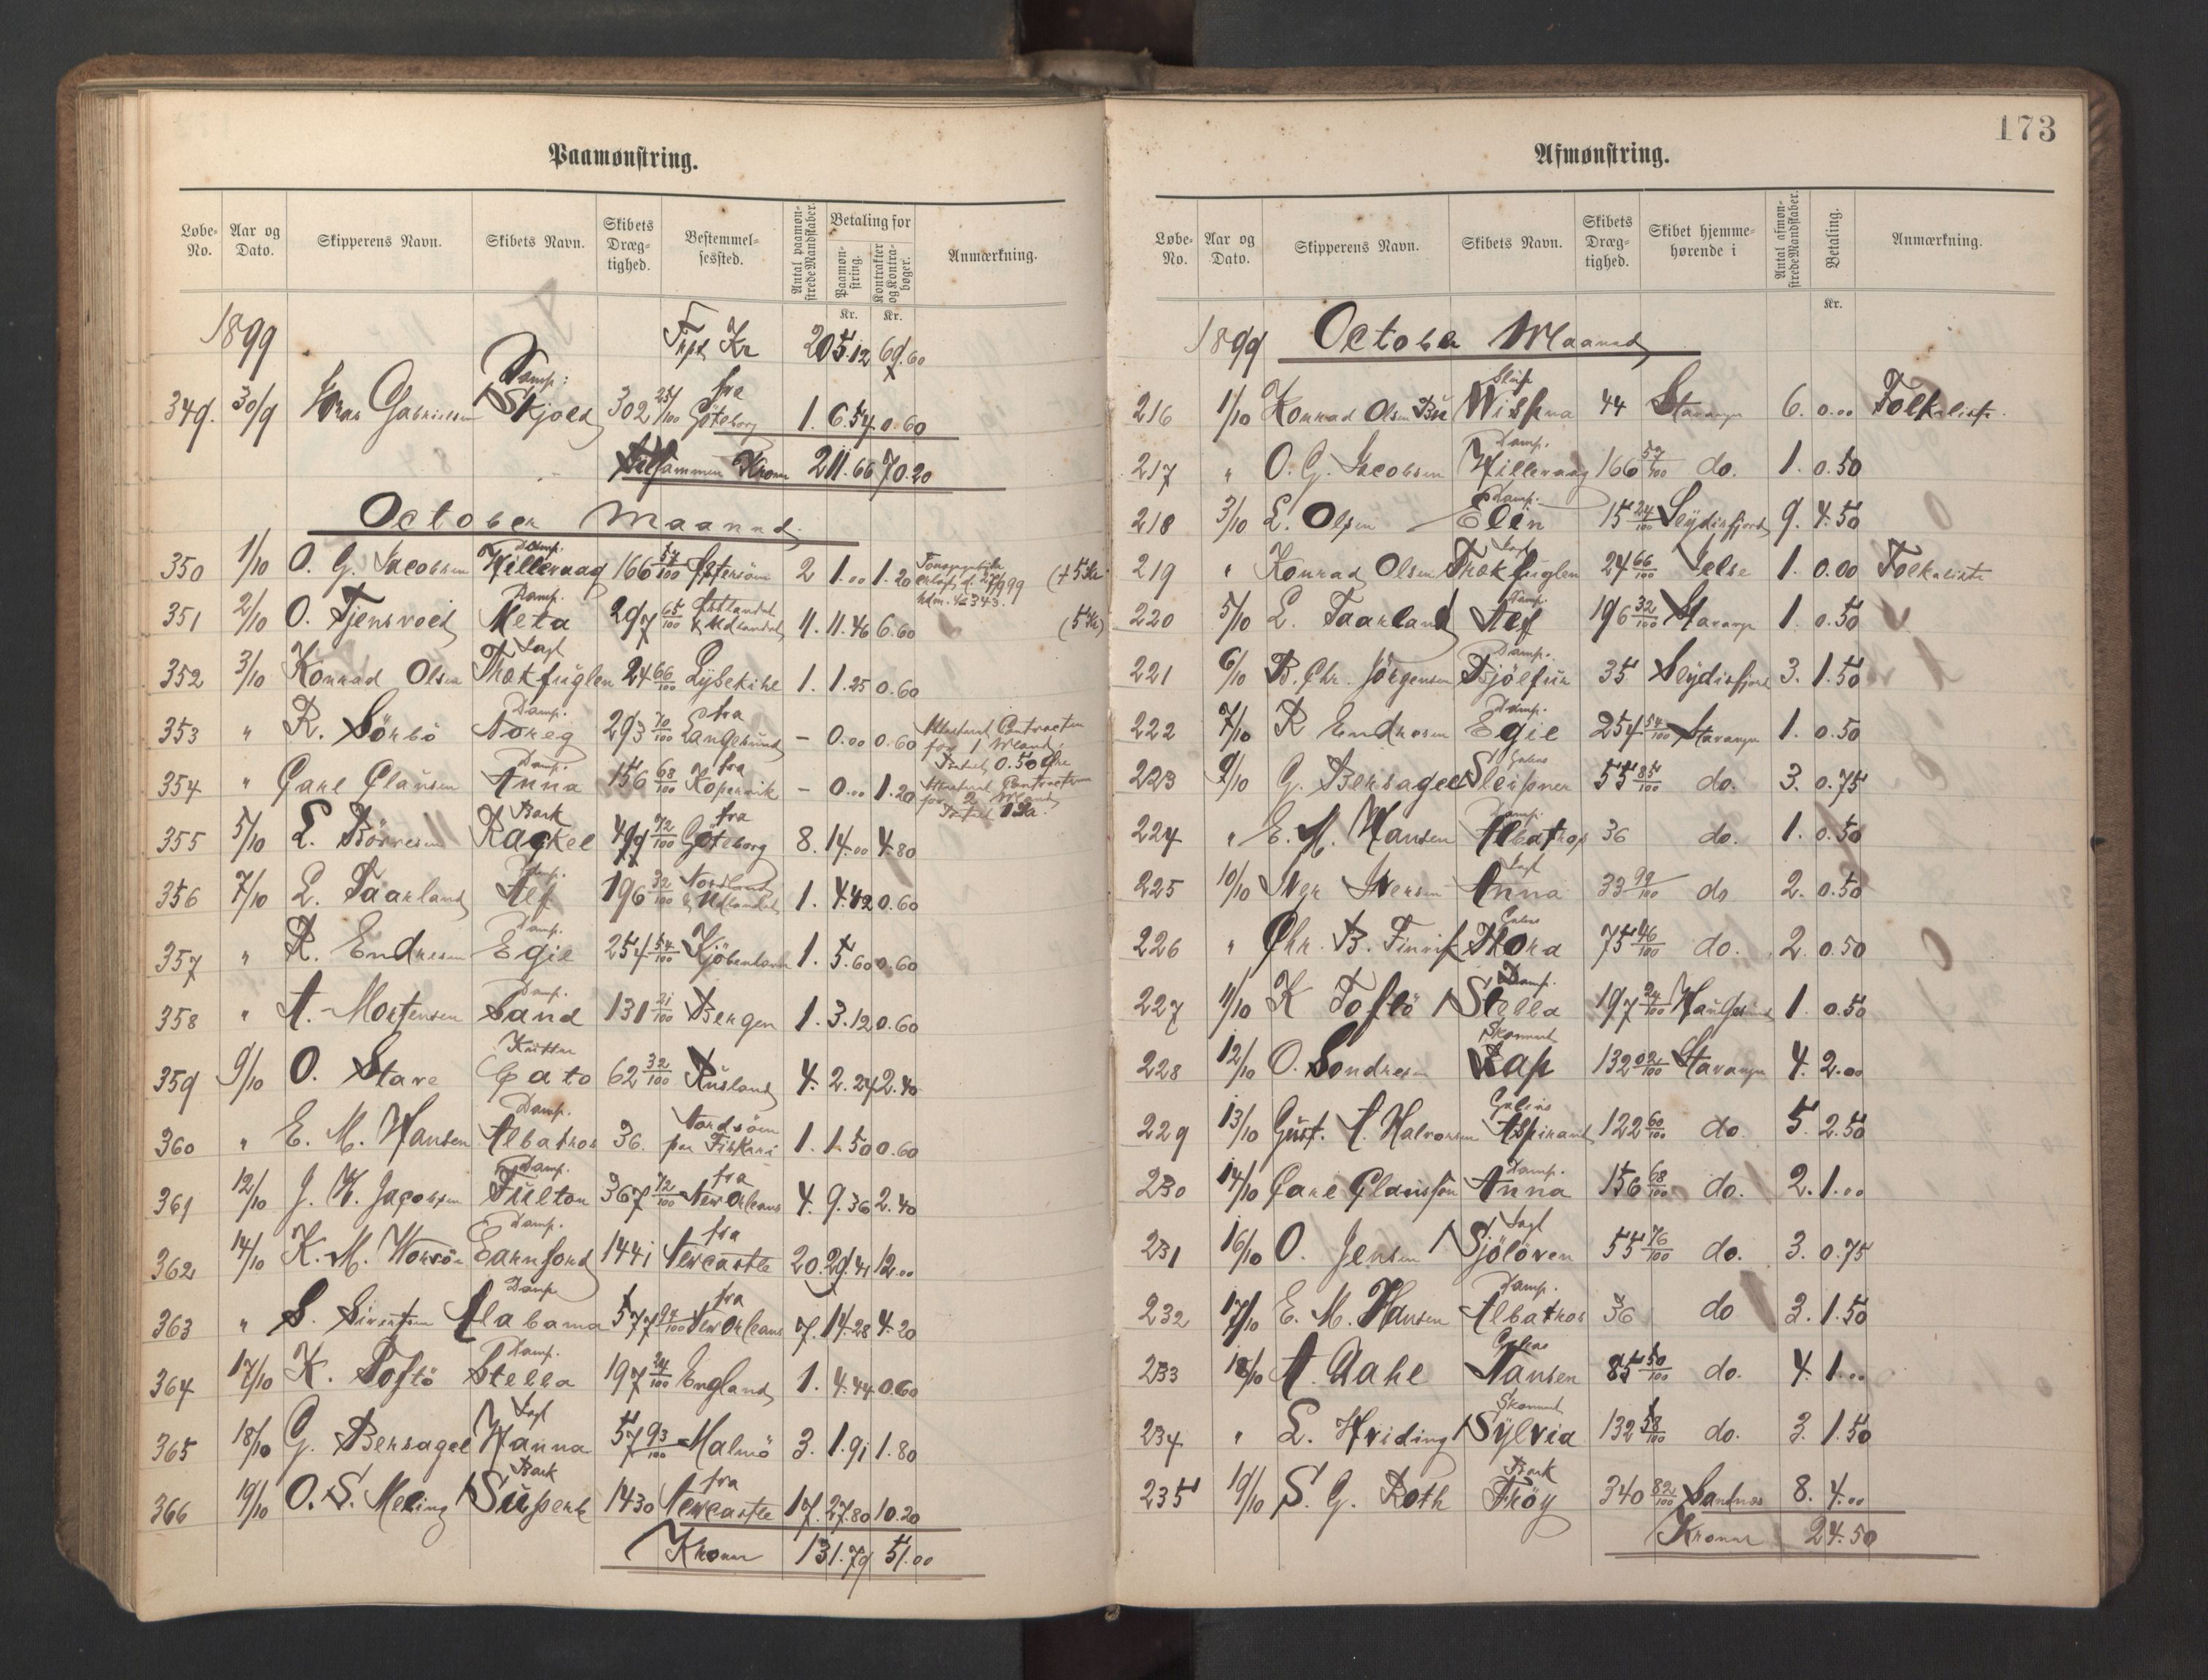 Paamønstring.
Løbe-No. Aar og Dato. Skipperens Navn. Skibets Navn. Skibets Dræg-tighed. Bestemmel-sessted. Antal paamøn-strede Mandskaber. Betaling for Paamøn-string. Kontrakter og Kontra-bøger. Anmærkning.
Kr. Kr.
1899 Kr 205.12 69.60
349. 30/9 Gabrielsen Damp: Skjold 302 25/100 fra Göteborg 1. 6.54 0.60
Tilsammen Kroner 211.66 70.20
October Maaned.
350 1/10 O. G. Jacobsen Damp. Hillevaag 166 57/100 Østersöen 2 1.00 1.20 (+ 5 Kr
351 2/10 O. Tjensvold Damp. Meta 297 65/100 & Udlandet 11. 11.46 6.60 (5 Kr)
352 3/10 Konrad Olsen Jagt Trækfuglen 24 66/100 Lysekihl 1. 1.25 0.60
353 " R. Sörbö Damp. Noreg 293 70/100 fra Langesund – 0.00 0.60 Attesteret Contracten for 1 Mand, 0.50 Øre
354 " Carl Clausen Damp. Anna 156 68/100 fra Kopervik – 0.00 1.20 Attesteret Contracten for 2 Mand
355 5/10 L. Börresen Bark Rackel 497 72/100 fra Göteborg 8. 14.00 4.80
356 7/10 L. Taarland Damp. Alf 196 32/100 Nordland & Udlandet 1. 4.42 0.60
357 " R. Endresen Damp. Egil 254 54/100 Kjöbenhavn 1. 5.60 0.60
358 " A. Mortensen Damp. Sand 131 21/100 Bergen 1. 3.12 0.60
359 9/10 O. Stave Kutter Cato 62 32/100 Rusland 4. 2.24 2.40
360 " E. M. Hansen Damp. Albatros 36. Nordsöen paa Fiskeri 1. 1.50 0.60
361 12/10 J. K. Jacobsen Damp. Fulton 367 72/100 fra New Orleans 4. 9.36 2.40
362 14/10 K. M. Worsöe Damp. Earnford 1441 fra Newcastle 20. 29.41 12.00
363 " S. Sivertsen Damp Alabama 577 fra New Orleans 7. 14.28 4.20
364 17/10 K. Toftö Damp. Stella 197 24/100 England 1. 4.44 0.60
365 18/10 G. Bersagel Jagt Hanna 57 93/100 Malmö 3. 1.91 1.80
366 19/10 O. S. Meling Bark Superb 1430 fra Newcastle 17. 27.80 10.20
Kroner 131.79 51.00
173
Afmønstring.
Løbe-No. Aar og Dato. Skipperens Navn. Skibets Navn. Skibets Dræg-tighed. Skibet hjemme-hørende i Antal afmøn-strede Mandskaber. Betaling. Anmærkning.
Kr.
1899 October Maaned
216 1/10 Konrad Olsen Bu Slup 44 Stavanger 6. 0.00 Folkeliste.
217 " O. G. Jacobsen Damp. Hillevaag 166 57/100 do. 1. 0.50
218 3/10 L. Olsen Damp. Elin 15 24/100 Seydisfjord 9. 4.50
219 " Konrad Olsen Jagt Trækfuglen 24 66/100 Jelse 1. 0.00 Folkeliste
220 5/10 L. Taarland Damp. Alf 196 32/100 Stavanger 1. 0.50
221 6/10 B. Chr. Jörgensen Damp. Bjölfur 35 Seydisfjord 3. 1.50
222 7/10 R Endresen Damp. Egil 254 54/100 Stavanger 1. 0.50
223 9/10 G. Bersagel Galeas Sleipner 55 85/100 do. 3. 0.75
224 " E. M. Hansen Damp. Albatros 36 do. 1. 0.50
225 10/10 Iver Iversen Jagt Anna 33 99/100 do 2. 0.50
226 " Chr. B. Galeas Thora 75 46/100 do. 2. 0.50
227 11/10 K Toftö Damp. Stella 197 24/100 Haugesund 1. 0.50
228 12/10 O. Sondresen Skonnert Zap 132 02/100 Stavanger 4. 2.00
229 13/10 Gust. A. Halvorsen Galeas Aspirant 122 60/100 do. 5. 2.50
230 14/10 Carl Claussen Damp. Anna 156 68/100 do. 2. 1.00
231 16/10 O. Jensen Jagt Sjölöven 55 76/100 do. 3. 0.75
232 17/10 E. M. Hansen Damp. Albatros 36 do 3. 1.50
233 18/10 A. Dahl Galeas Nansen 85 50/100 do. 4. 1.00
234 " L. Hviding Skonnert Sylvia 132 58/100 do. 3. 1.50
235 19/10 S. G. Roth Bark Fröy 340 82/100 Sandnes 8. 4.00
Kroner 24.50